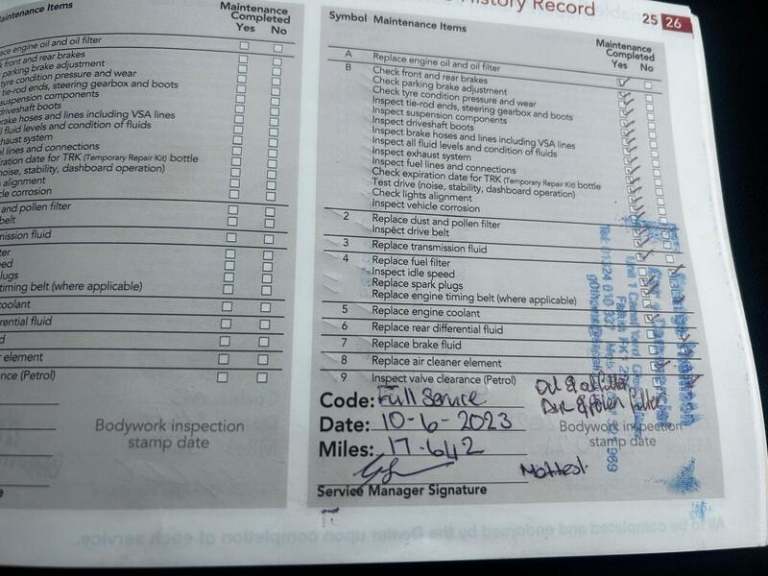 History Record
25 26
Maintenance Items
Maintenance
Completed
Yes No
ace engine oil and oil filter
front and rear brakes
parking brake adjustment
tyre condition pressure and wear
tie-rod ends, steering gearbox and boots
suspension components
driveshaft boots
rake hoses and lines including VSA lines
l fluid levels and condition of fluids
haust system
l lines and connections
ration date for TRK (Temporary Repair Kit) bottle
noise, stability, dashboard operation)
alignment
cle corrosion
and pollen filter
belt
mission fluid
ter
eed
lugs
timing belt (where applicable)
coolant
rential fluid
d
r element
nce (Petrol)
Bodywork inspection
stamp date
Symbol Maintenance Items
Maintenance
Completed
Yes No
A Replace engine oil and oil filter
B Check front and rear brakes
Check parking brake adjustment
Check tyre condition pressure and wear
Inspect tie-rod ends, steering gearbox and boots
Inspect suspension components
Inspect driveshaft boots
Inspect brake hoses and lines including VSA lines
Inspect all fluid levels and condition of fluids
Inspect exhaust system
Inspect fuel lines and connections
Check expiration date for TRK (Temporary Repair Kit) bottle
Test drive (noise, stability, dashboard operation)
Check lights alignment
Inspect vehicle corrosion
2 Replace dust and pollen filter
Inspect drive belt
3 Replace transmission fluid
4 Replace fuel filter
Inspect idle speed
Replace spark plugs
Replace engine timing belt (where applicable)
5 Replace engine coolant
6 Replace rear differential fluid
7 Replace brake fluid
8 Replace air cleaner element
9 Inspect valve clearance (Petrol)
Oil & oil filter
Air & Polen filter
Code: Full Service
Date: 10-6-2023
Miles: 17.642
Bodywork inspection
stamp date
Service Manager Signature